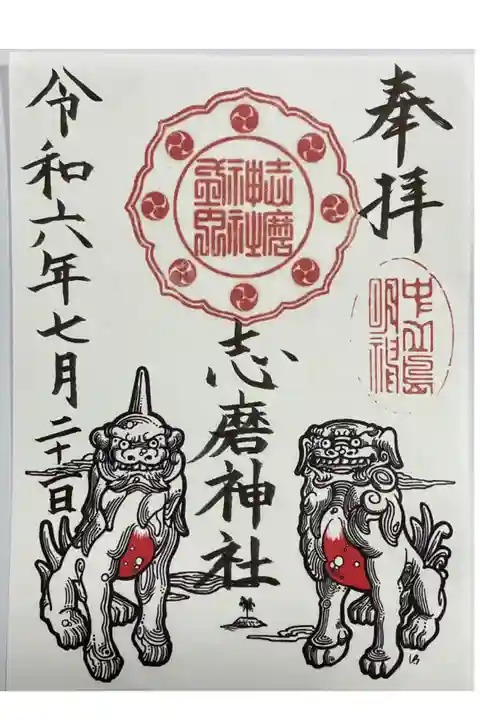 奉拝
中山島
明神
志磨
神社
志磨神社
令和六年七月二十一日